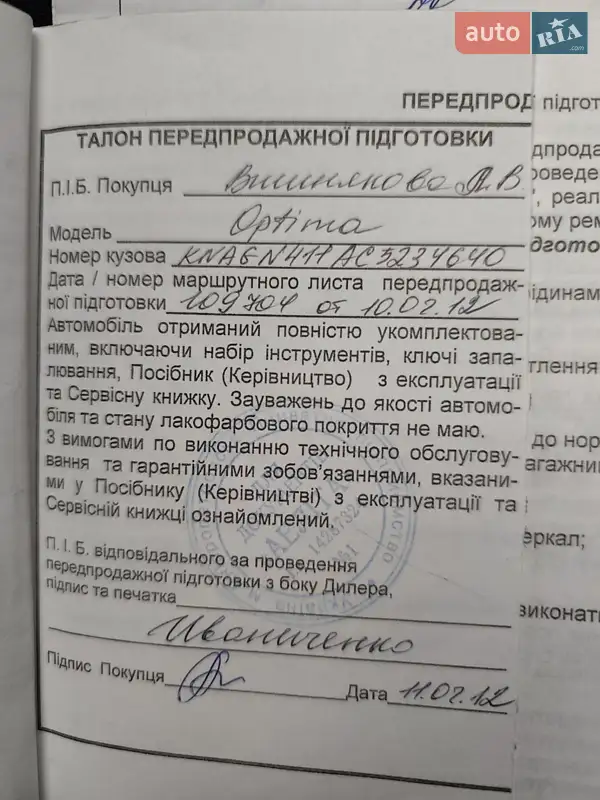 auto RIA .com
ПЕРЕДПРОД підгот
ТАЛОН ПЕРЕДПРОДАЖНОЇ ПІДГОТОВКИ
П.І.Б. Покупця Вишнякова Л.В.
Модель Optima
Номер кузова KNAGN411AC5234640
Дата / номер маршрутного листа передпродаж-
ної підготовки 109704 от 10.02.12
Автомобіль отриманий повністю укомплектова-
ним, включаючи набір інструментів, ключі запа-
лювання, Посібник (Керівництво) з експлуатації
та Сервісну книжку. Зауважень до якості автомо-
біля та стану лакофарбового покриття не маю.
З вимогами по виконанню технічного обслугову-
вання та гарантійними зобов'язаннями, вказани-
ми у Посібнику (Керівництві) з експлуатації та
Сервісній книжці ознайомлений.
П. І. Б. відповідального за проведення
передпродажної підготовки з боку Дилера,
підпис та печатка
Иваниченко
Підпис Покупця
Дата 11.02.12
дпрода
роведе
", реал
ому рем
дгото
ідинам
тлення
до нор
агажни
еркал;
виконат